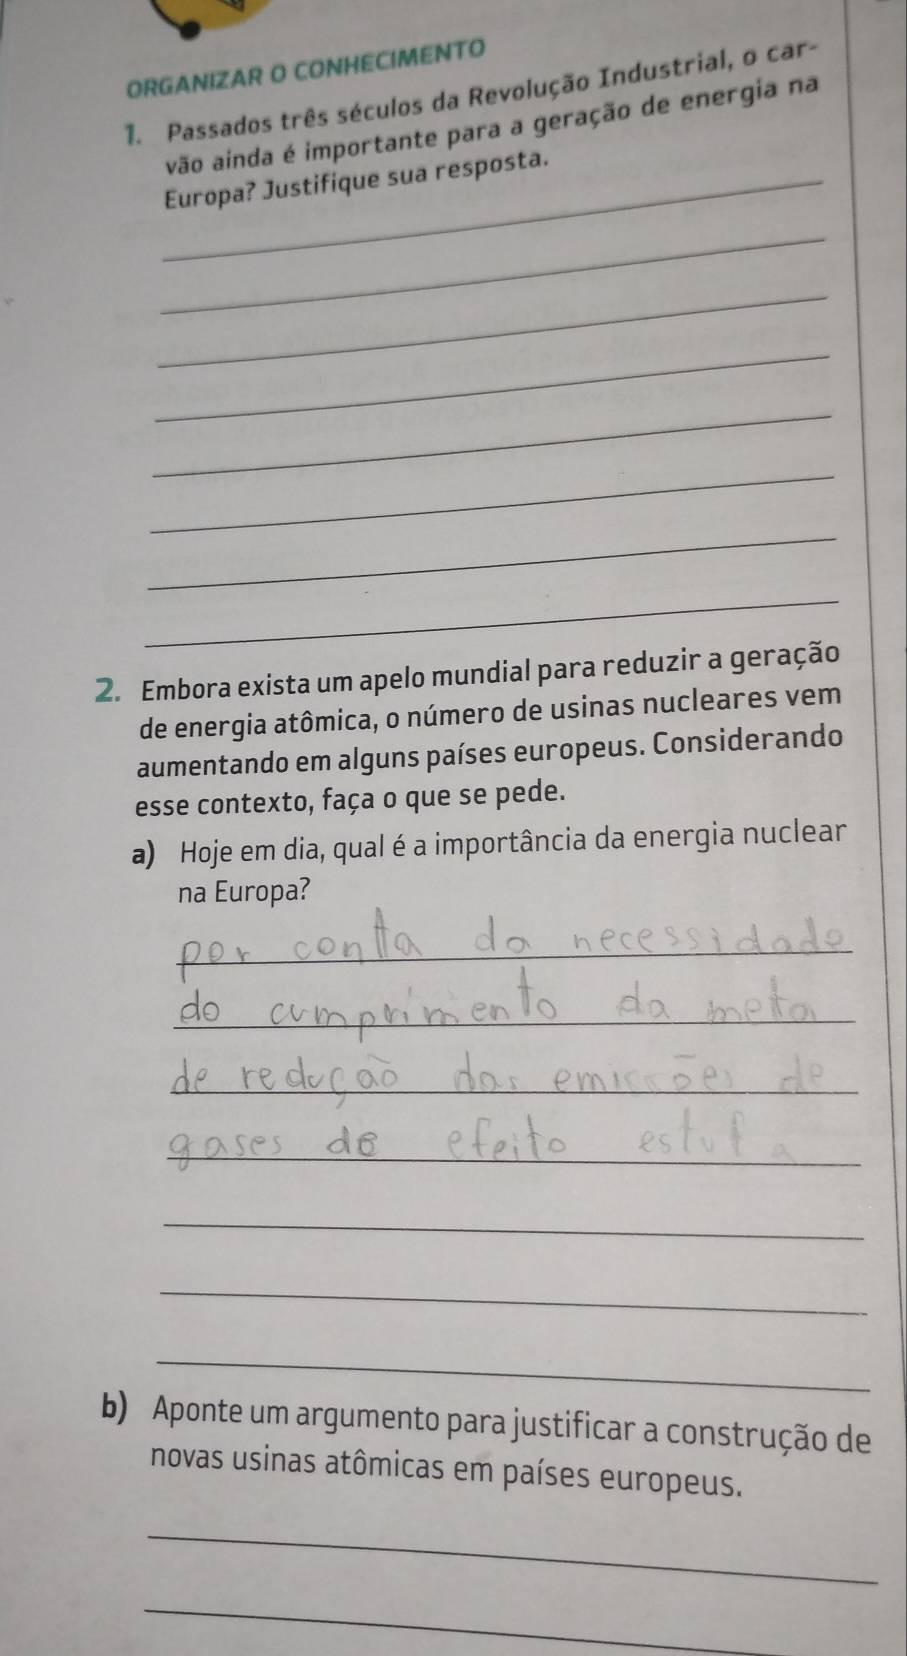 ORGANIZAR O CONHECIMENTO
1. Passados três séculos da Revolução Industrial, o car-
vão ainda é importante para a geração de energia na
Europa? Justifique sua resposta.
2. Embora exista um apelo mundial para reduzir a geração
de energia atômica, o número de usinas nucleares vem
aumentando em alguns países europeus. Considerando
esse contexto, faça o que se pede.
a) Hoje em dia, qual é a importância da energia nuclear
na Europa?
por conta da necessidade
do cumprimento da meta
de redução das emissões de
gases de efeito estufa
b) Aponte um argumento para justificar a construção de
novas usinas atômicas em países europeus.